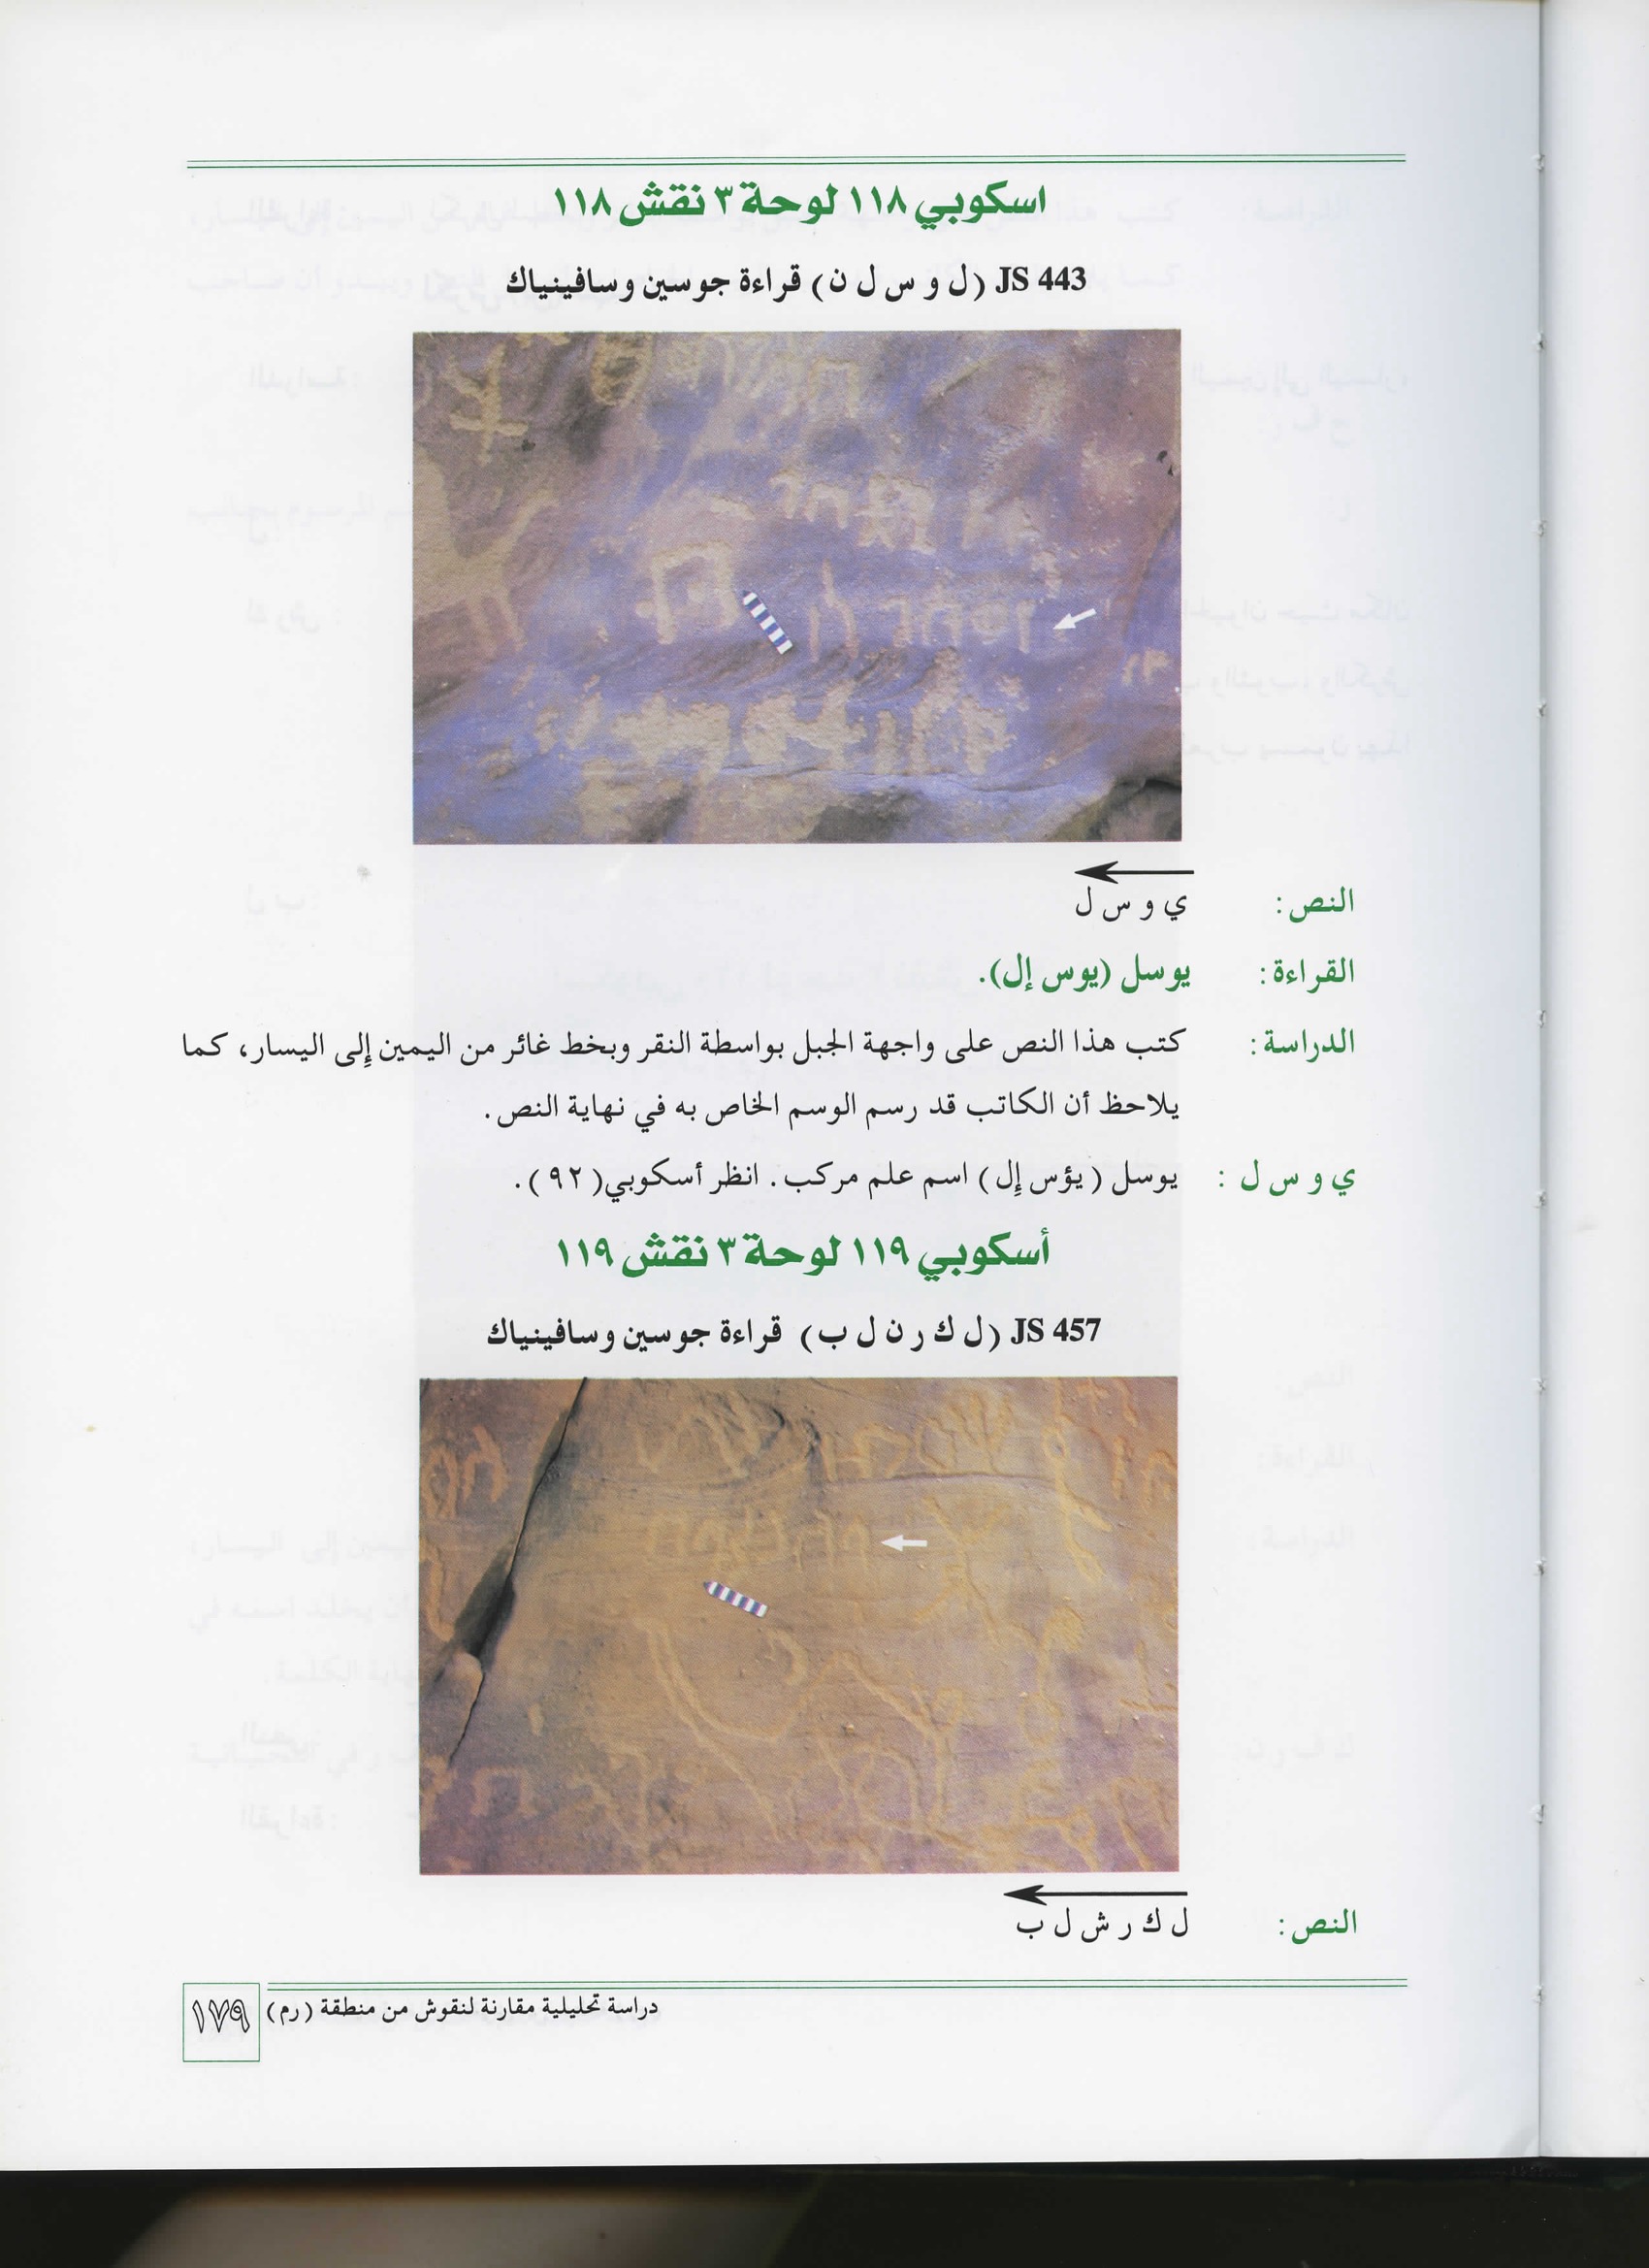 اسكوبي ١١٨ لوحة ٣ نقش ١١٨
JS 443 (ل و س ل ن) قراءة جوسين وسافينياك
النص: ي و س ل
القراءة: يوسل (يوس إل).
الدراسة: كتب هذا النص على واجهة الجبل بواسطة النقر وبخط غائر من اليمين إلى اليسار، كما
يلاحظ أن الكاتب قد رسم الوسم الخاص به في نهاية النص.
ي و س ل : يوسل (يؤس إل) اسم علم مركب. انظر أسكوبي (٩٢).
أسكوبي ١١٩ لوحة ٣ نقش ١١٩
JS 457 (ل ك ر ن ل ب) قراءة جوسين وسافينياك
النص: ل ك ر ش ل ب
دراسة تحليلية مقارنة لنقوش من منطقة (رم) ١٧٩